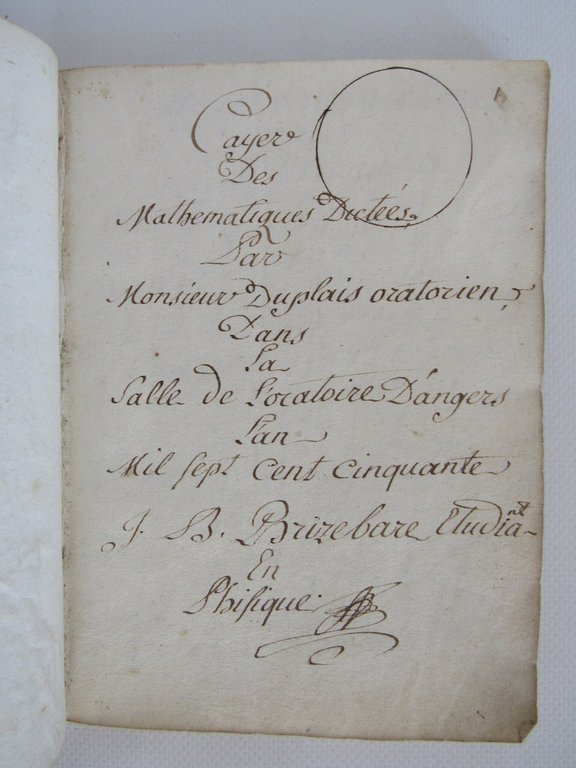 Cayer
Des
Mathematiques Dictées,
Par
Monsieur Duplais oratorien,
Dans
La
Salle de Loratoire D'angers
Lan
Mil sept cent cinquante
J. B. Brizebare Etudiant
En
Phisique.